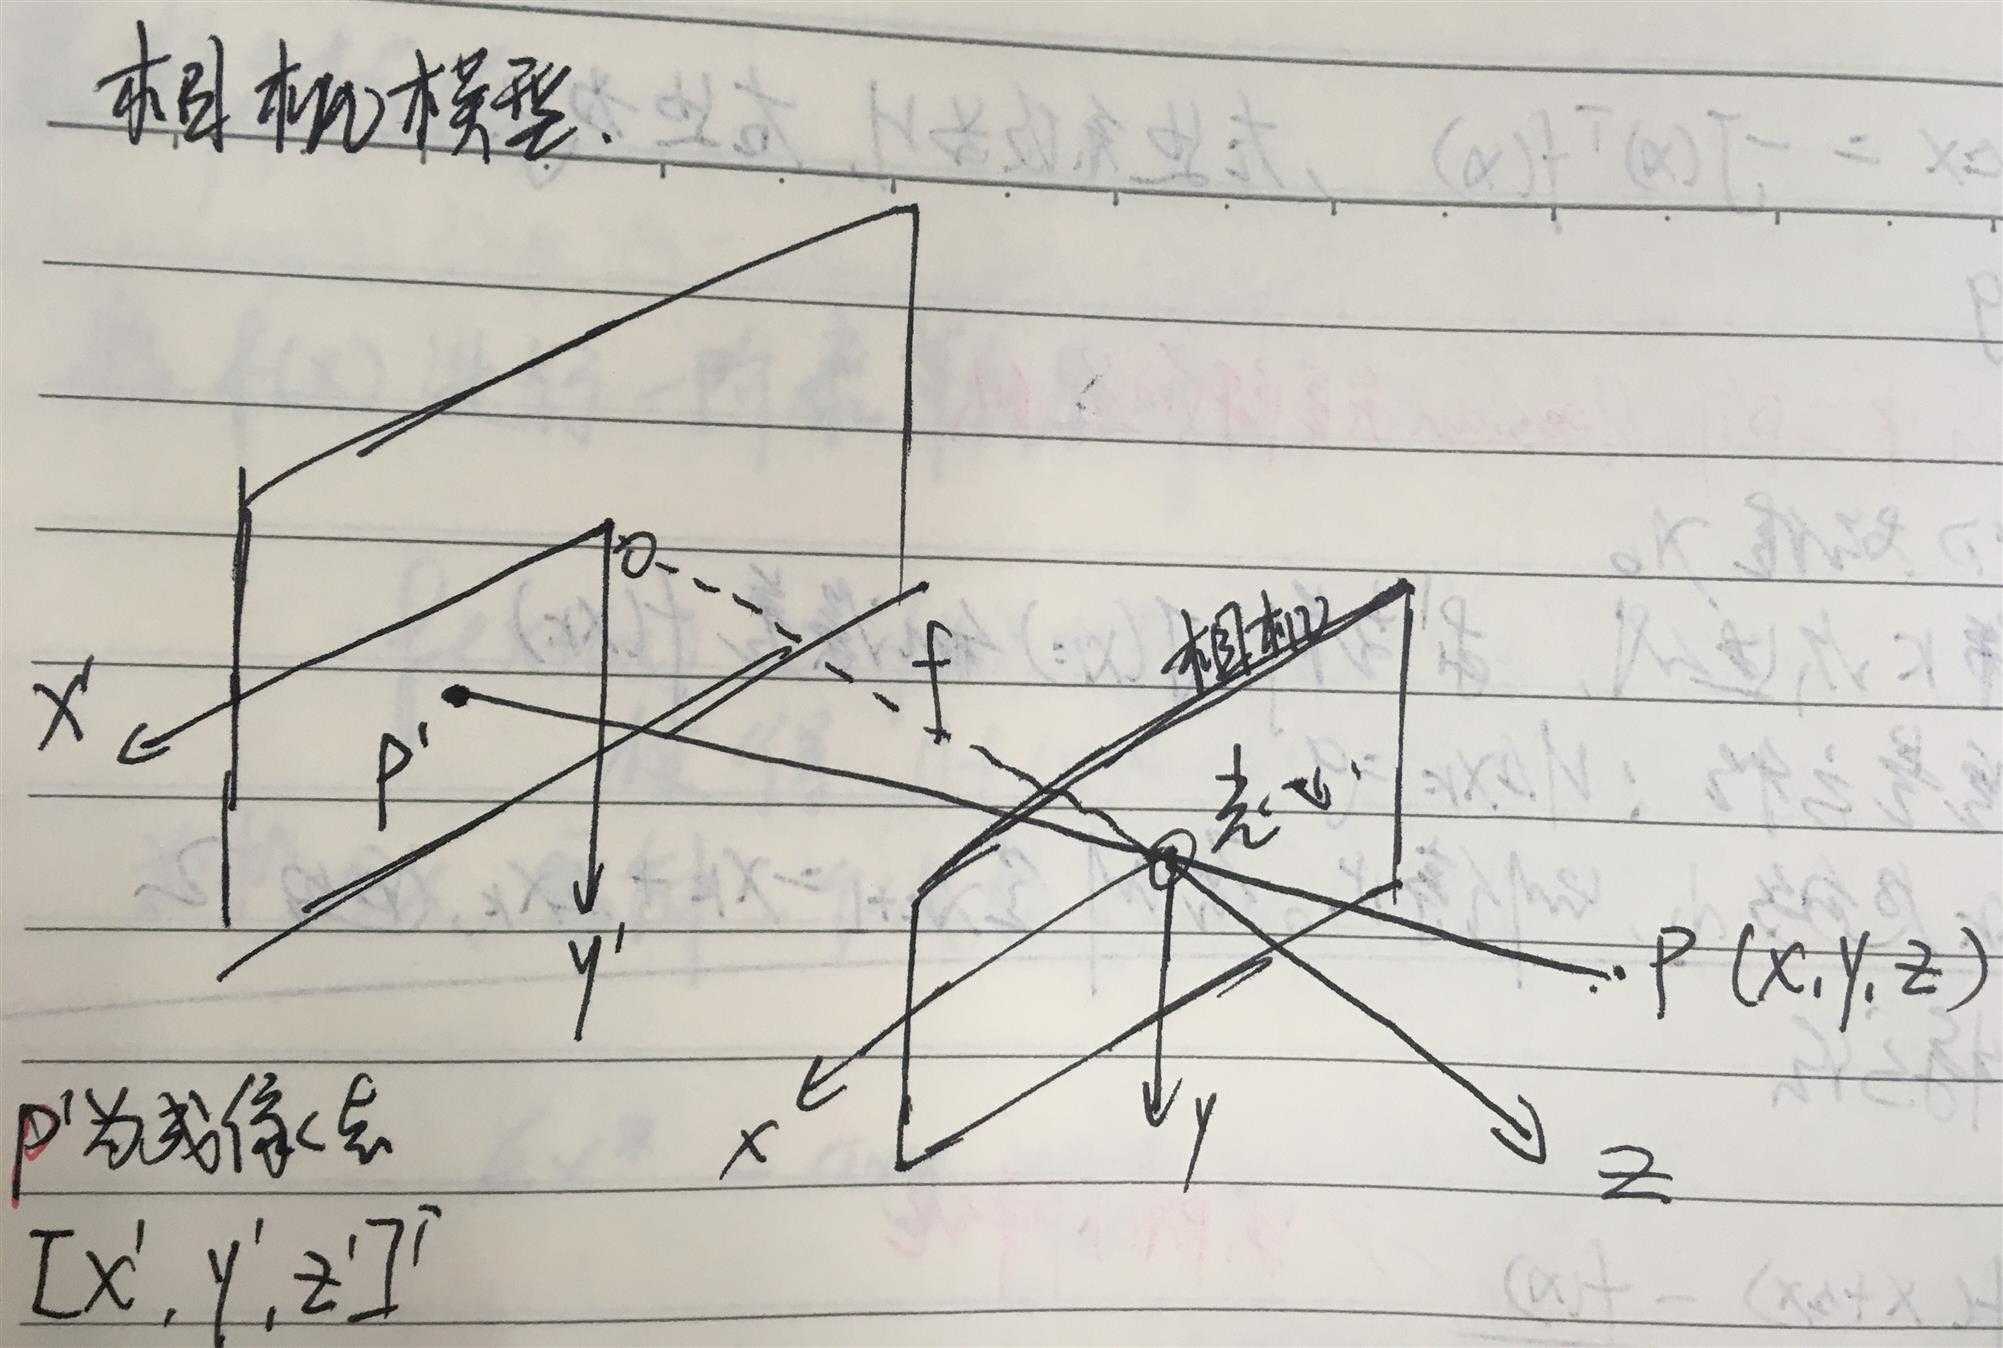 相机模型.
O
f
相机
X'
P'
光心.
P (X, Y, Z)
Y'
X
Y
Z
P'为成像点
[X', Y', Z']ᵀ